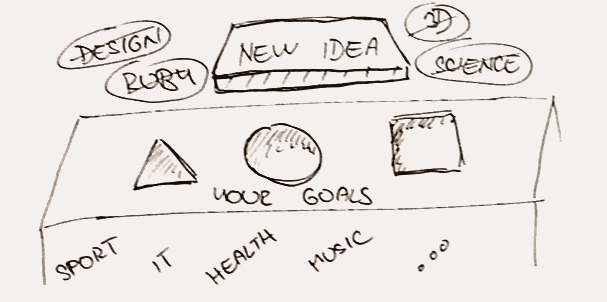 DESIGN
RUBY
NEW IDEA
3D
SCIENCE
YOUR GOALS
SPORT
IT
HEALTH
MUSIC
...